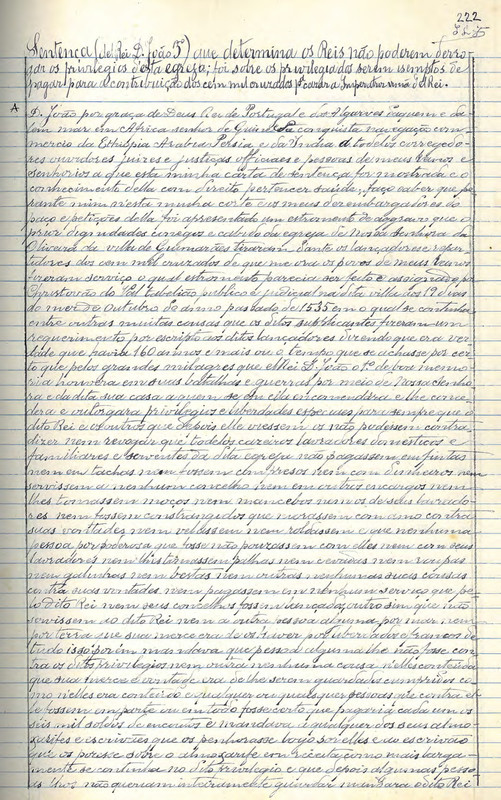 222
Sentença (del Rei D. João 3º) que determina os Reis não poderem derro
gar os privilegios desta egreja; foi sobre os privilegiados serem isemptos de
pagar para a contribuição dos cem mil cruzados para a Imperatriz irmã do Rei.
A
D. João por graça de Deus Rei de Portugal e dos Algarves daquem e da
lem mar em Africa senhor de Guiné da conquista navegação com
mercio da Ethiopia Arabia Persia e da India a todolos corregedo
res ouvidores juizes e justiças officiaes e pessoas de meus reinos e
senhorios a que esta minha carta de sentença for mostrada e o
conhecimento della com direito pertencer saude; faço saber que pe
rante mim nesta minha corte e os meus desembargadores do
paço e petições della foi apresentado um estromento de aggravo que o
prior dignidades conegos e cabido da egreja de Nossa Senhora da
Oliveira da villa de Guimarães tiraram dante os lançadores e repar
tidores dos cem mil cruzados de que me ora os povos de meus reinos
fizeram serviço o qual estromento parecia ser feito e assignado por
Christovão do Val tabellião publico e judicial na dita villa aos 19 dias
do mez de outubro do anno passado de 1535 em o qual se continha
entre outras muitas causas que os ditos supplicantes fizeram um
requerimento por escripto aos ditos lançadores dizendo que era ver
dade que havia 160 annos e mais ou o tempo que se achasse por cer
to que pelos grandes milagres que el Rei D. João o 1º de boa memo
ria houvera em suas batalhas e guerras por meio de Nossa Senho
ra e da dita sua casa a quem se em ella encomendara e lhe conce
dera e outorgara privilegios e liberdades especiaes para sempre que o
dito Rei e os outros que depois elle viessem os não podessem contra
dizer nem revogar que todolos caseiros lavradores domesticos e
familiares e serventes da dita egreja não pagassem em fintas
nem em tachas nem fossem com presos nem com dinheiros nem
servissem a nenhum concelho nem em outros encargos nem
lhes tomassem moços nem mancebos nem os de seus lavrado
res nem fossem constrangidos que morassem com amo contra
suas vontades nem velassem nem roldassem e que nenhuma
pessoa por poderosa que fosse não pousassem com elles nem com seus
lavradores nem lhes tomassem palhas nem cevadas nem roupas
nem galinhas nem bestas nem outras nenhumas suas cousas
contra suas vontades nem pagassem em nenhum serviço que pe
lo dito Rei nem seus concelhos fossem lançados, outro sim que não
servissem ao dito Rei nem a outra pessoa alguma por mar nem
por terra que sua merce era de os haver por libertados e francos de
tudo isso porem mandava que pessoa alguma lhe não fosse con
tra os ditos privilegios nem outra nenhuma cousa nelle conteuda
que sua merce e vontade era de lhe serem guardados cumpridos co
mo nelles era conteudo e qualquer ou quaesquer pessoas que contra el
le fossem em parte ou em todo fosse certo que pagaria cada um os
seis mil soldos de encouto e mandava a qualquer dos seus almo
xarifes e escrivães que os penhorasse logo por elles e ao escrivão
que os pozesse sobre o almoxarife em receita como mais larga
mente se continha no dito privilegio e que depois algumas pesso
as lhos não queriam inteiramente guardar e mandara o dito Rei